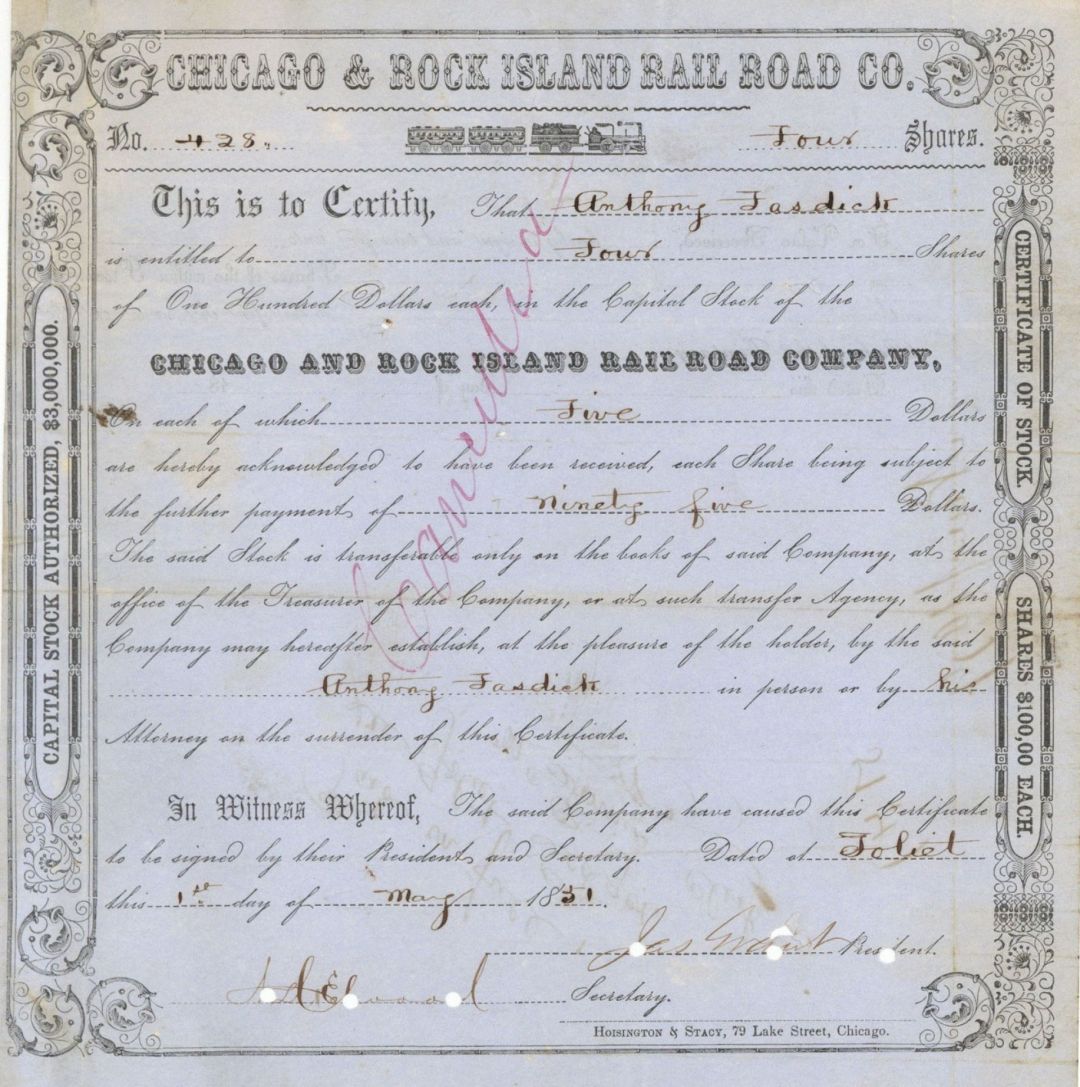 CHICAGO & ROCK ISLAND RAIL ROAD CO.
No. 428. Four Shares.
This is to Certify, That Anthony Fosdick
is entitled to Four Shares
of One Hundred Dollars each, in the Capital Stock of the
CHICAGO AND ROCK ISLAND RAIL ROAD COMPANY,
On each of which Five Dollars
are hereby acknowledged to have been received, each Share being subject to
the further payment of Ninety five Dollars.
The said Stock is transferable only on the books of said Company, at the
office of the Treasurer of the Company, or at such transfer Agency, as the
Company may hereafter establish, at the pleasure of the holder, by the said
Anthony Fosdick in person or by his
Attorney on the surrender of this Certificate.
In Witness Whereof, The said Company have caused this Certificate
to be signed by their President and Secretary. Dated at Joliet
this 1st day of May 1851.
Jas Grant President.
Elwood Secretary.
HOISINGTON & STACY, 79 Lake Street, Chicago.
CAPITAL STOCK AUTHORIZED, $3,000,000.
CERTIFICATE OF STOCK
SHARES $100,00 EACH.
Cancelled